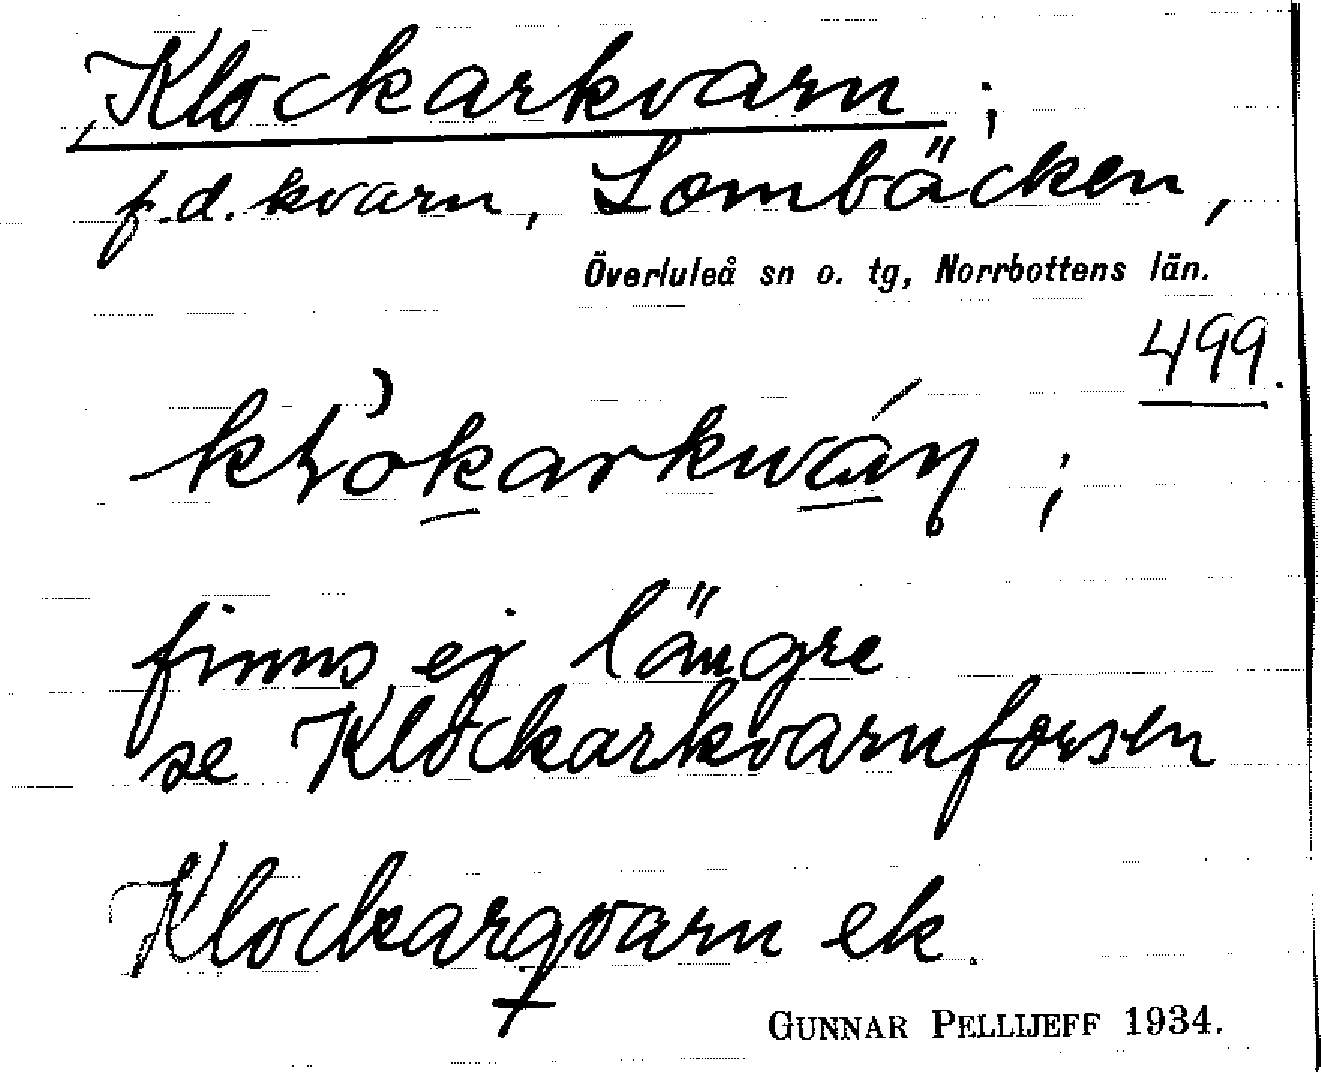 Klockarkvarn ;
f.d. kvarn, Lombäcken,
Överluleå sn o. tg, Norrbottens län.
499.
finns ej längre
se Klockarkvarnforsen
Klockarqvarn ek.
GUNNAR PELLIJEFF 1934.